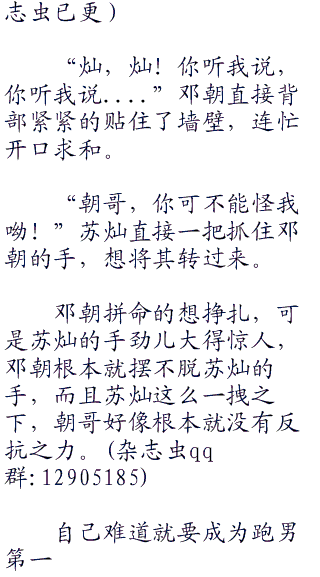 志虫已更）
“灿，灿！你听我说，
你听我说....”邓朝直接背
部紧紧的贴住了墙壁，连忙
开口求和。
“朝哥，你可不能怪我
呦！”苏灿直接一把抓住邓
朝的手，想将其转过来。
邓朝拼命的想挣扎，可
是苏灿的手劲儿大得惊人，
邓朝根本就摆不脱苏灿的
手，而且苏灿这么一拽之
下，朝哥好像根本就没有反
抗之力。(杂志虫qq
群:12905185)
自己难道就要成为跑男
第一